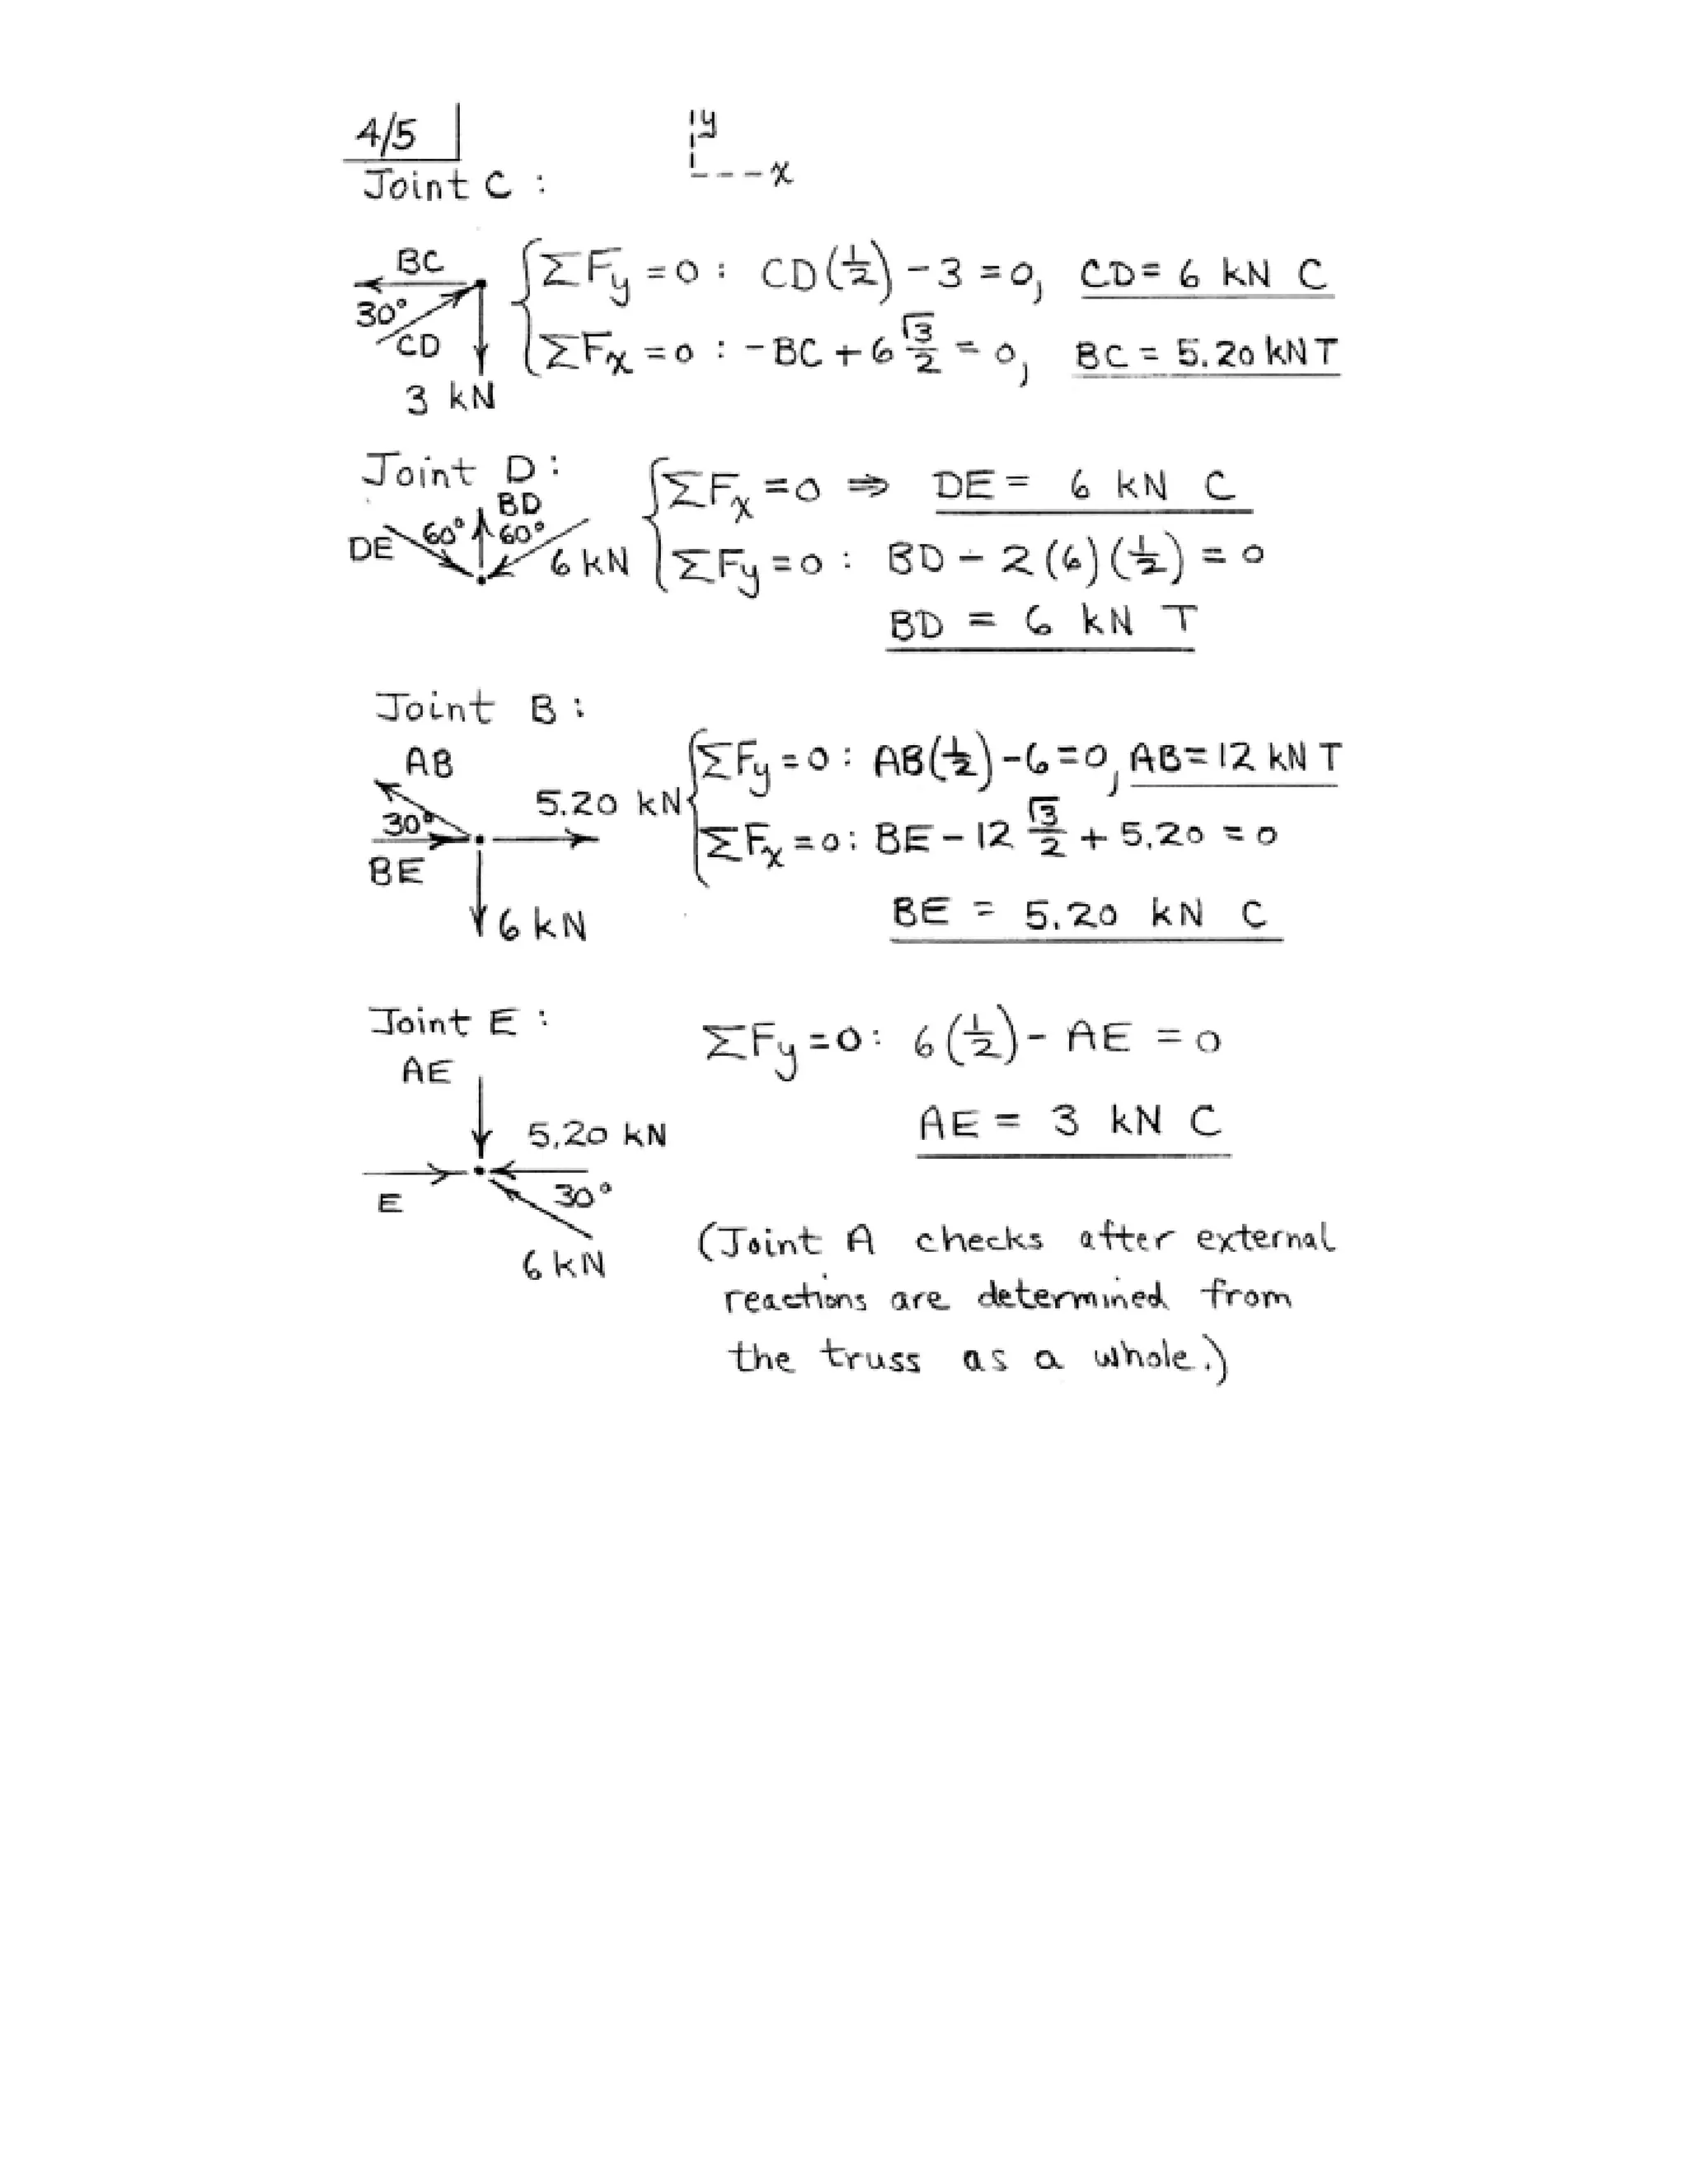 4/5
y
x
Joint C :
BC
30°
CD
3 kN
ΣFy = 0 : CD(1/2) - 3 = 0, CD = 6 kN C
ΣFx = 0 : -BC + 6 √3/2 = 0, BC = 5.20 kN T
Joint D :
BD
DE 60° 60°
6 kN
ΣFx = 0 ⇒ DE = 6 kN C
ΣFy = 0 : BD - 2(6)(1/2) = 0
BD = 6 kN T
Joint B :
AB
30°
5.20 kN
BE
6 kN
ΣFy = 0 : AB(1/2) - 6 = 0, AB = 12 kN T
ΣFx = 0 : BE - 12 √3/2 + 5.20 = 0
BE = 5.20 kN C
Joint E :
AE
5.20 kN
E
30°
6 kN
ΣFy = 0 : 6(1/2) - AE = 0
AE = 3 kN C
(Joint A checks after external
reactions are determined from
the truss as a whole.)